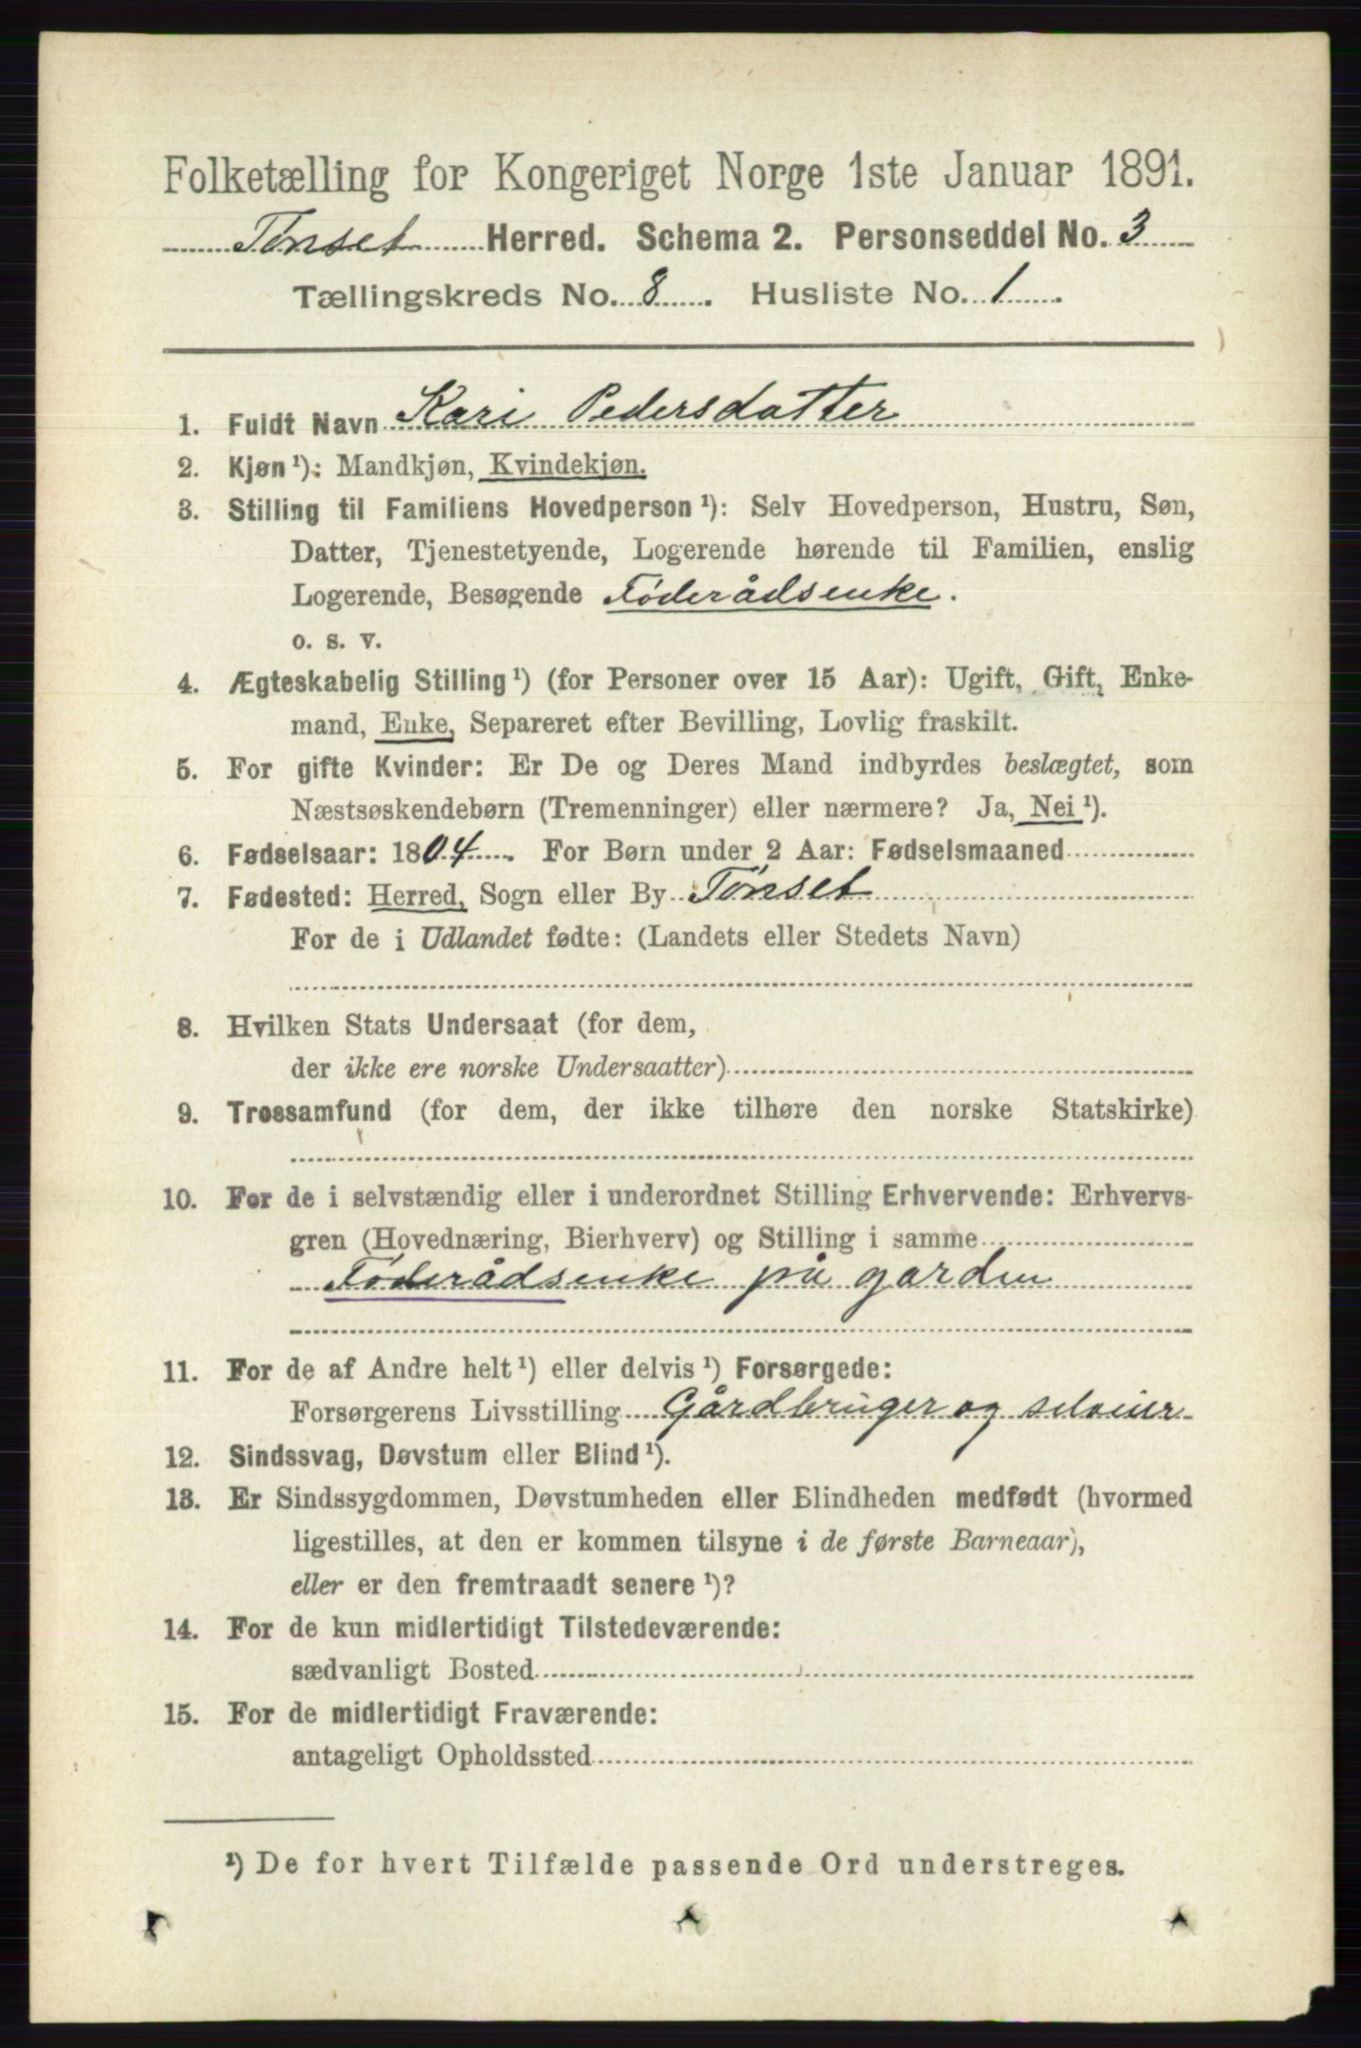 Folketælling for Kongeriget Norge 1ste Januar 1891.
Tønset Herred. Schema 2. Personseddel No. 3
Tællingskreds No. 8. Husliste No. 1.
1. Fuldt Navn Kari Pedersdatter
2. Kjøn¹): Mandkjøn, Kvindekjøn.
3. Stilling til Familiens Hovedperson¹): Selv Hovedperson, Hustru, Søn,
Datter, Tjenestetyende, Logerende hørende til Familien, enslig
Logerende, Besøgende Føderådsenke.
o. s. v.
4. Ægteskabelig Stilling¹) (for Personer over 15 Aar): Ugift, Gift, Enke-
mand, Enke, Separeret efter Bevilling, Lovlig fraskilt.
5. For gifte Kvinder: Er De og Deres Mand indbyrdes beslægtet, som
Næstsøskendebørn (Tremenninger) eller nærmere? Ja, Nei¹).
6. Fødselsaar: 1804. For Børn under 2 Aar: Fødselsmaaned
7. Fødested: Herred, Sogn eller By Tønset
For de i Udlandet fødte: (Landets eller Stedets Navn)
8. Hvilken Stats Undersaat (for dem,
der ikke ere norske Undersaatter)
9. Trossamfund (for dem, der ikke tilhøre den norske Statskirke)
10. For de i selvstændig eller i underordnet Stilling Erhvervende: Erhvervs-
gren (Hovednæring, Bierhverv) og Stilling i samme
Føderådsenke på garden
11. For de af Andre helt¹) eller delvis¹) Forsørgede:
Forsørgerens Livsstilling Gårdbruger og selveier
12. Sindssvag, Døvstum eller Blind¹).
13. Er Sindssygdommen, Døvstumheden eller Blindheden medfødt (hvormed
ligestilles, at den er kommen tilsyne i de første Barneaar),
eller er den fremtraadt senere¹)?
14. For de kun midlertidigt Tilstedeværende:
sædvanligt Bosted
15. For de midlertidigt Fraværende:
antageligt Opholdssted
¹) De for hvert Tilfælde passende Ord understreges.